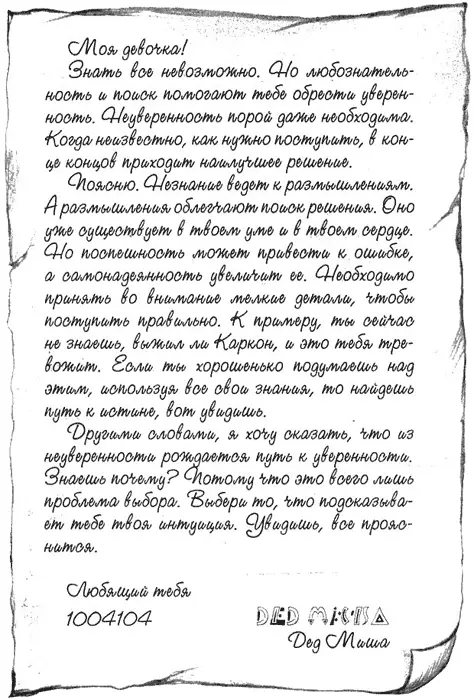 Моя девочка!
Знать все невозможно. Но любознатель-
ность и поиск помогают тебе обрести уверен-
ность. Неуверенность порой даже необходима.
Когда неизвестно, как нужно поступить, в кон-
це концов приходит наилучшее решение.
Поясню. Незнание ведет к размышлениям.
А размышления облегчают поиск решения. Оно
уже существует в твоем уме и в твоем сердце.
Но поспешность может привести к ошибке,
а самонадеянность увеличит ее. Необходимо
принять во внимание мелкие детали, чтобы
поступить правильно. К примеру, ты сейчас
не знаешь, выжил ли Каркон, и это тебя тре-
вожит. Если ты хорошенько подумаешь над
этим, используя все свои знания, то найдешь
путь к истине, вот увидишь.
Другими словами, я хочу сказать, что из
неуверенности рождается путь к уверенности.
Знаешь почему? Потому что это всего лишь
проблема выбора. Выбери то, что подсказыва-
ет тебе твоя интуиция. Увидишь, все прояс-
нится.
Любящий тебя
1004104
DED MISA
Дед Миша